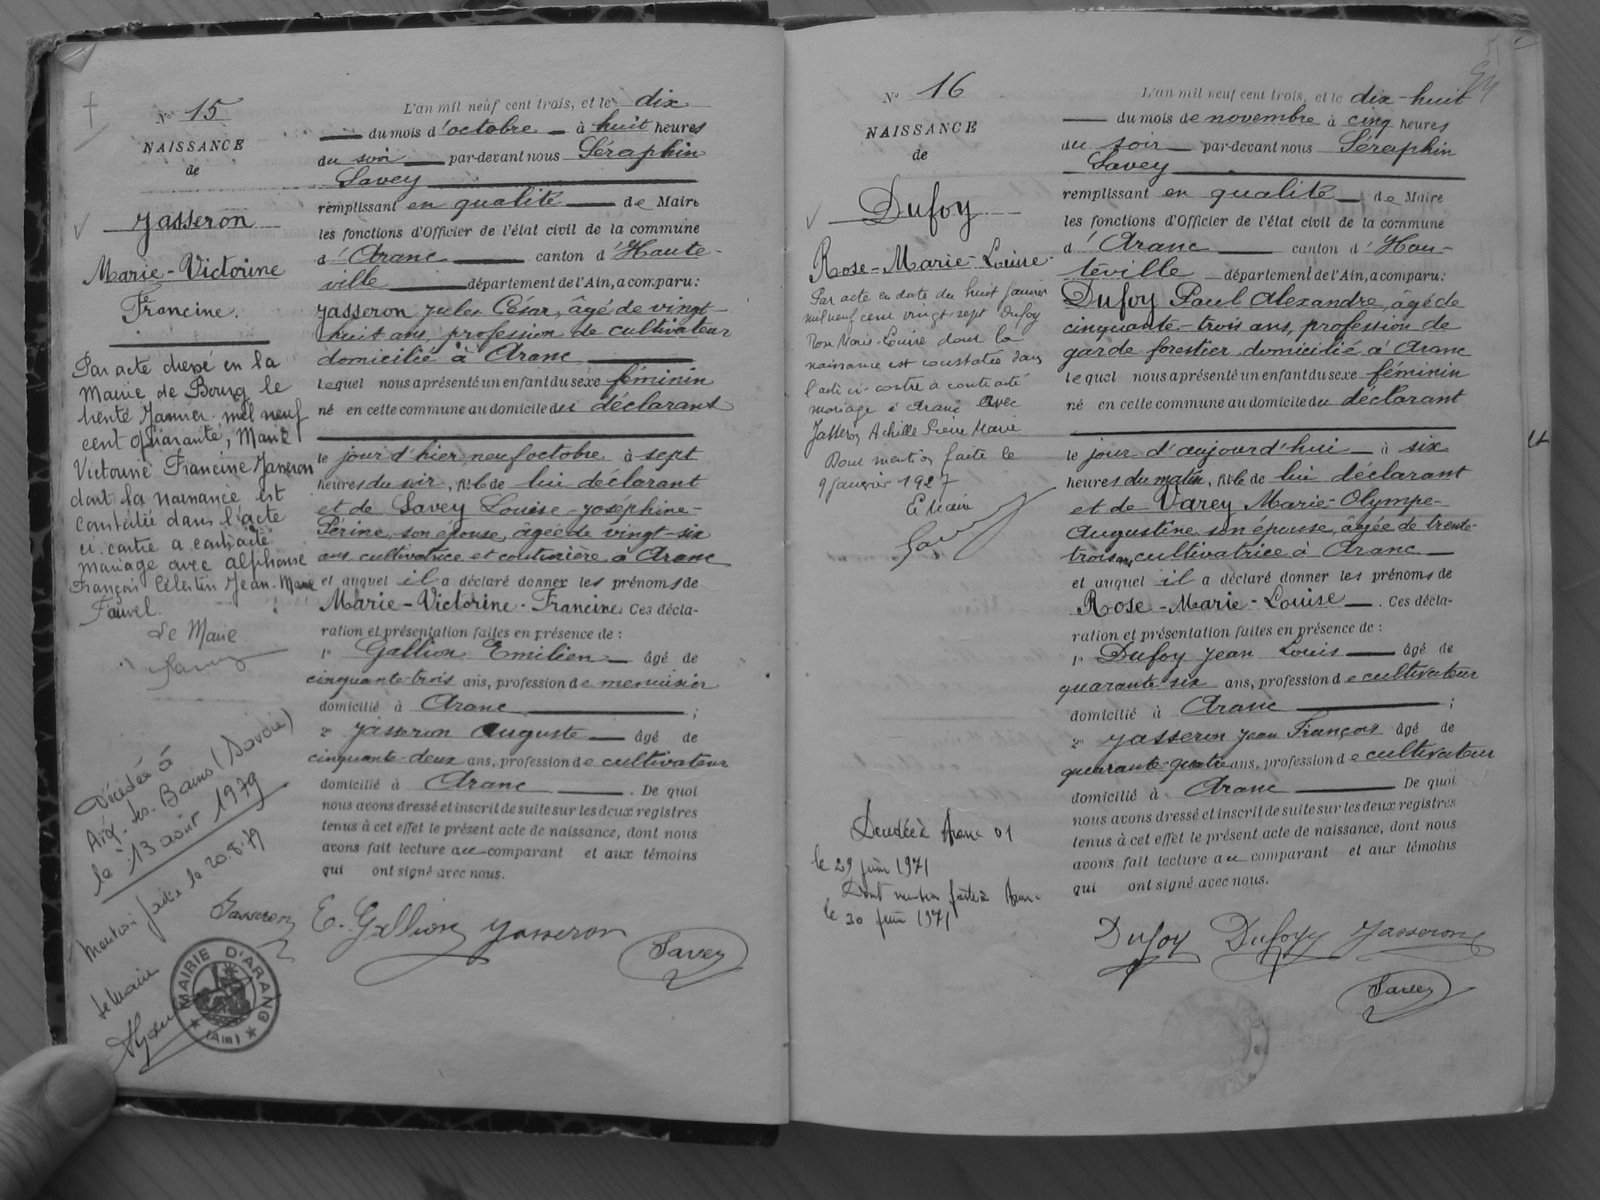 N° 15
NAISSANCE
de
Jasseron
Marie-Victorine
Francine.
Par acte dressé en la
Mairie de Bourg le
trente Janvier mil neuf
cent quarante, Marie
Victorine Francine Jasseron
dont la naissance est
constatée dans l'acte
ci-contre a contracté
mariage avec Alphonse
François Célestin Jean-Marie
Fauvel.
Le Maire
Savey
Décédée à
Aix-les-Bains (Savoie)
le 13 août 1979
Mention faite le 20.8.79
Le Maire
MAIRIE D'ARANC
(Ain)
L'an mil neuf cent trois, et le dix
du mois d'octobre à huit heures
du soir par-devant nous Séraphin
Savey
remplissant en qualité de Maire
les fonctions d'Officier de l'état civil de la commune
d'Aranc canton d'Haute-
ville département de l'Ain, a comparu:
Jasseron Jules César, âgé de vingt-
huit ans, profession de cultivateur
domicilié à Aranc
lequel nous a présenté un enfant du sexe féminin
né en cette commune au domicile du déclarant
le jour d'hier, neuf octobre à sept
heures du soir, fille de lui déclarant
et de Savey Louise-Joséphine-
Périne son épouse, âgée de vingt-six
ans cultivatrice et couturière à Aranc
et auquel il a déclaré donner les prénoms de
Marie-Victorine-Francine. Ces décla-
ration et présentation faites en présence de :
1° Gallion Emilien âgé de
cinquante-trois ans, profession de menuisier
domicilié à Aranc ;
2° Jasseron Auguste âgé de
cinquante-deux ans, profession de cultivateur
domicilié à Aranc . De quoi
nous avons dressé et inscrit de suite sur les deux registres
tenus à cet effet le présent acte de naissance, dont nous
avons fait lecture au comparant et aux témoins
qui ont signé avec nous.
Jasseron E. Gallion Jasseron
Savey
N° 16
NAISSANCE
de
Dufoy
Rose-Marie-Louise
Par acte en date du huit janvier
mil neuf cent vingt sept Dufoy
Rose Marie-Louise dont la
naissance est constatée dans
l'acte ci-contre a contracté
mariage à Aranc avec
Jasseron Achille Pierre Marie
Dont mention faite le
9 janvier 1927
Le Maire
Savey
Décédée à Aranc 01
le 29 juin 1971
Dont mention faite à Aranc
le 30 juin 1971
L'an mil neuf cent trois, et le dix-huit
du mois de novembre à cinq heures
du soir par-devant nous Séraphin
Savey
remplissant en qualité de Maire
les fonctions d'Officier de l'état civil de la commune
d'Aranc canton d'Hau-
teville département de l'Ain, a comparu:
Dufoy Paul Alexandre, âgé de
cinquante-trois ans, profession de
garde forestier domicilié à Aranc
lequel nous a présenté un enfant du sexe féminin
né en cette commune au domicile du déclarant
le jour d'aujourd'hui à six
heures du matin, fille de lui déclarant
et de Varey Marie-Olympe-
Augustine son épouse, âgée de trente-
trois ans cultivatrice à Aranc
et auquel il a déclaré donner les prénoms de
Rose-Marie-Louise . Ces décla-
ration et présentation faites en présence de :
1° Dufoy Jean Louis âgé de
quarante-six ans, profession de cultivateur
domicilié à Aranc ;
2° Jasseron Jean François âgé de
quarante-quatre ans, profession de cultivateur
domicilié à Aranc . De quoi
nous avons dressé et inscrit de suite sur les deux registres
tenus à cet effet le présent acte de naissance, dont nous
avons fait lecture au comparant et aux témoins
qui ont signé avec nous.
Dufoy Dufoy Jasseron
Savey